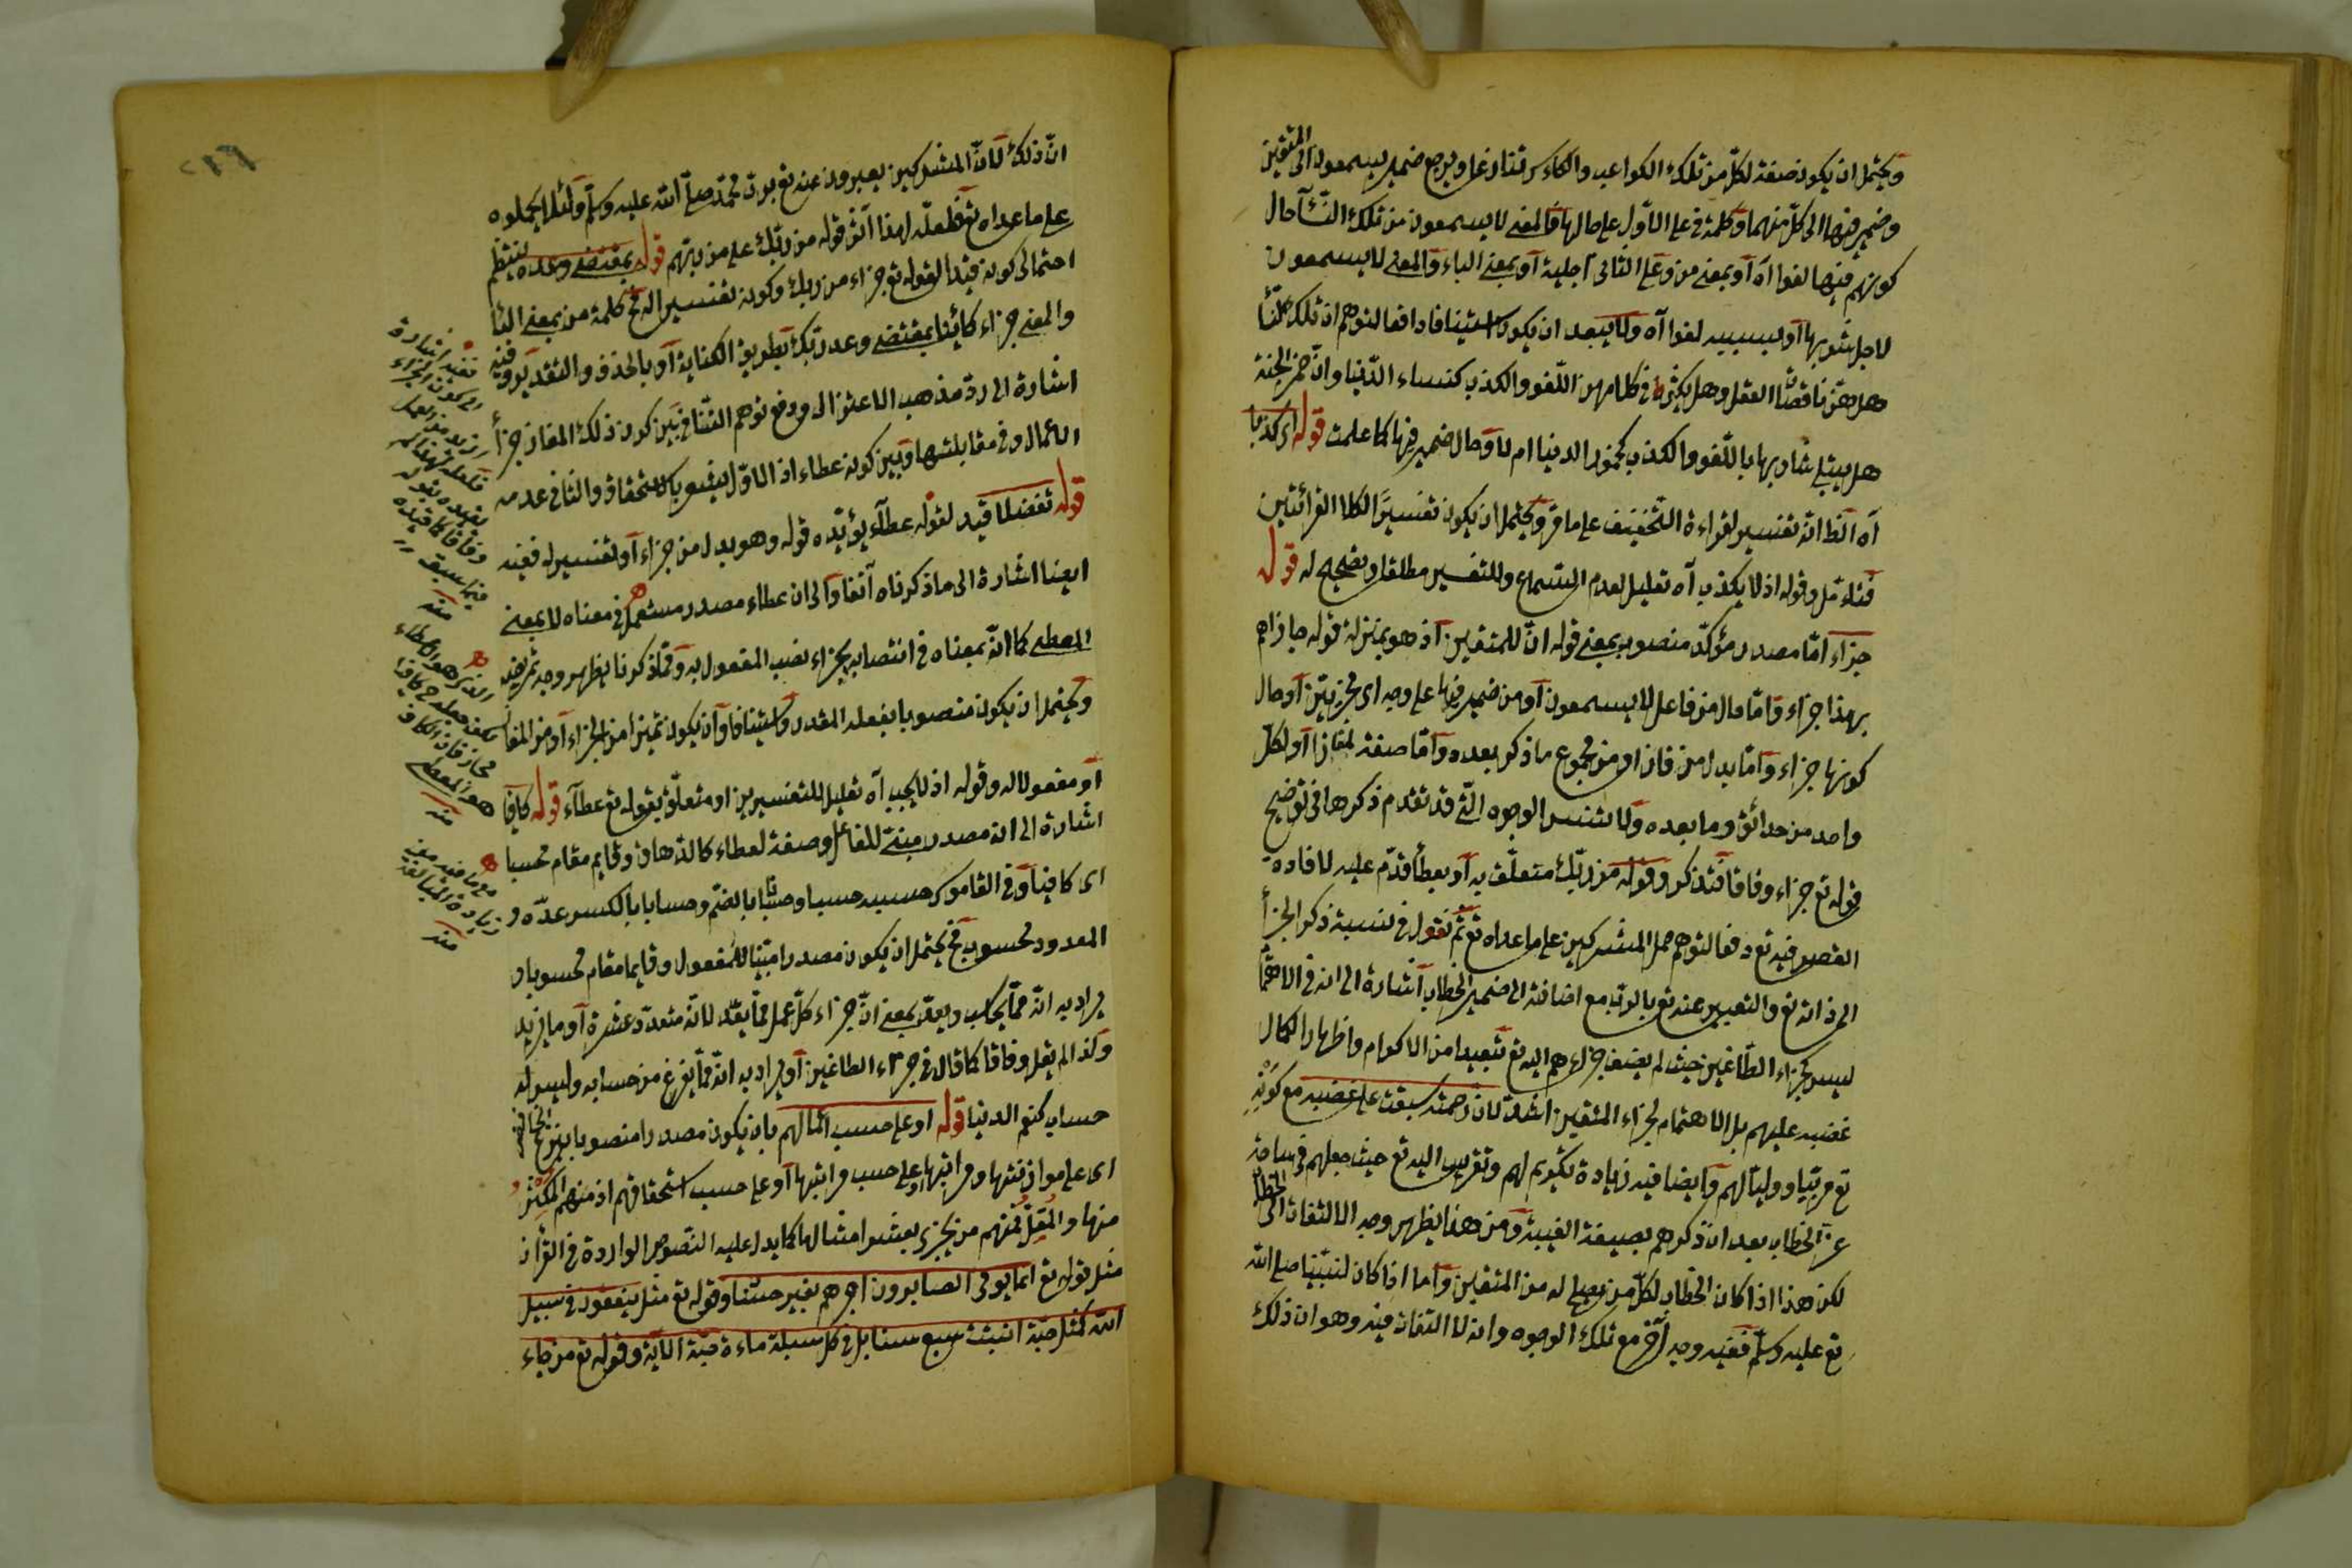 ويحتمل ان يكون صفة لكل من تلك الكواعب والكاس تنازعا ويرجع ضمير يسمعون الى المتقين
وضمير فيها الى كل منهما وكلمة في على الاول على حالها فالمعنى لا يسمعون من تلك النساء حال
كونهم فيها لغوا اه او بمعنى من وعلى الثاني اجلية او بمعنى الباء والمعنى لا يسمعون
لاجل شربها او بسببه لغوا اه ولا يبعد ان يكون استينافا دافعا لتوهم ان تلك
هل هن ناقصات العقل وهل يكثر في كلامهن اللغو والكذب كنساء الدنيا وان خمر الجنة
هل يبتلى شاربها باللغو والكذب كخمور الدنيا ام لا وحال ضمير فيها كما علمت قوله اى كذبا
اه الظ انه تفسير لقراءة التخفيف على ما مر ويحتمل ان يكون تفسيرا لكلا القرائتين
فتأمل وقوله اذ لا يكذب اه تعليل لعدم السماع وللتفسير مطلقا وتصحيح له قوله
جزاء اما مصدر مؤكد منصوب بمعنى قوله ان للمتقين اذ هو بمنزلة قوله جازاهم
بهذا جزاء واما حال من فاعل لا يسمعون او من ضمير فيها على وجه اى مجزيين او حال
كونها جزاء واما بدل من مفازا او من مجموع ما ذكر بعده واما صفة لمفازا او لكل
واحد من حدائق وما بعده ولا تنس الوجوه التي قد تقدم ذكرها في توضيح
قوله تع جزاء وفاقا فتذكر وقوله من ربك متعلق به او بعطأ قدم عليه لافادة
القصر فيه تع دفعا لتوهم حمل المشركين على ما عداه تع ثم نقول في نسبة ذكر الجزأ
الى ذاته تع والتعبير عنه تع بالرب مع اضافته الى ضمير الخطاب اشارة الى انه في الاهتما
ليس كجزاء الطاغين حيث لم يضف جزاءهم اليه تع تبعيدا من الاكرام واظهارا لكمال
غضبه عليهم بل الاهتمام لجزاء المتقين اشد لان رحمته سبقت على غضبه مع كونه
تع مربيا ووليا لهم وايضا فيه زيادة تكريم لهم وتقريب اليه تع حيث جعلهم في ساحة
عز الخطاب بعد ان ذكرهم بصيغة الغيبة ومن هذا يظهر وجه الالتفات الى الخطاب
لكن هذا اذا كان الخطاب لكل من يصلح له من المتقين واما اذا كان لنبينا صلى الله
تع عليه وسلم ففيه وجه آخر مع تلك الوجوه وانه لا التفات فيه وهو ان ذلك
ان ذلك لان المشركين يعبرون عنه تع برب محمد صلى الله عليه وسلم ولئلا يحملوه
على ما عداه تع فلعله لهذا آثر قوله من ربك على من ربهم قوله بمقتضى وعده لينتظم
احتمالى كونه قيدا لقوله تع جزاء من ربك وكونه تفسير اله فح كلمة من بمعنى البا
والمعنى جزاء كائنا بمقتضى وعد ربك بطريق الكناية او بالحذف والتقدير وفيه
اشارة الى رد مذهب الاعتزال ودفع توهم التنافي بين كون ذلك المفاز جزأ
الاعمال وفي مقابلتها وبين كونه عطاء اذ الاول يشعر بالاستحقاق والثاني عدمه
قوله تفضلا قيد لقوله عطاء يؤيده قوله وهو بدل من جزاء او تفسير له ففيه
ايضا اشارة الى ما ذكرناه آنفا والى ان عطاء مصدر مستعمل في معناه لا بمعنى
المعطى كما انه بمعناه في انتصابه بجزاء نصب المفعول به ومما ذكرنا يظهر وجه تمريضه
ويحتمل ان يكون منصوبا بفعله المقدر واستينافا وان يكون تميزا من الجزاء او من المفا
او مفعولا له وقوله اذ لا يجب اه تعليل للتفسيرين او متعلق بقوله تع عطاء قوله كافيا
اشارة الى انه مصدر مبنى للفاعل وصفة لعطاء كالدهاق وقايم مقام محسبا
اى كافيا وفي القاموس حسبه حسبا وحسبانا بالضم وحسابا بالكسر عده و
المعدود محسوب فح يحتمل ان يكون مصدرا مبنيا للمفعول وقايما مقام محسوبا و
يراد به انه مما يحاسب ويعد بمعنى ان جزاء كل عمل مما يعد لانه متعدد عشرة او ما يزيد
وكذا لم يقل وفاقا كما قال في جزاء الطاغين او يراد به انه مما يفرغ من حسابه وليس له
حساب كنعم الدنيا قوله او على حسب اعمالهم بان يكون مصدرا منصوبا بنزع الخافض
اى على موازنتها ومراتبها او على حسب مراتبها او على حسب استحقاقهم اذ منهم المكثر
منها والمقل فمنهم من يجزى بعشر امثالها كما يدل عليه النصوص الواردة في القرآن
مثل قوله تع انما يوفى الصابرون اجرهم بغير حساب وقوله تع مثل ينفقون في سبيل
الله كمثل حبة انبتت سبع سنابل في كل سنبلة ماءة حبة الآية وقوله تع من جاء
ففيه اشارة
الى كون الجزاء
ازيد من العمل
فلعله لهذا لم
يقيده بقوله
وفاقا كما قيده
فيما سبق
منه
الذى هو العطاء
فح كافيا
مجاز فان الكافي
هو المعطى
منه
مع ما فيه من
زيادة المبالغة
منه